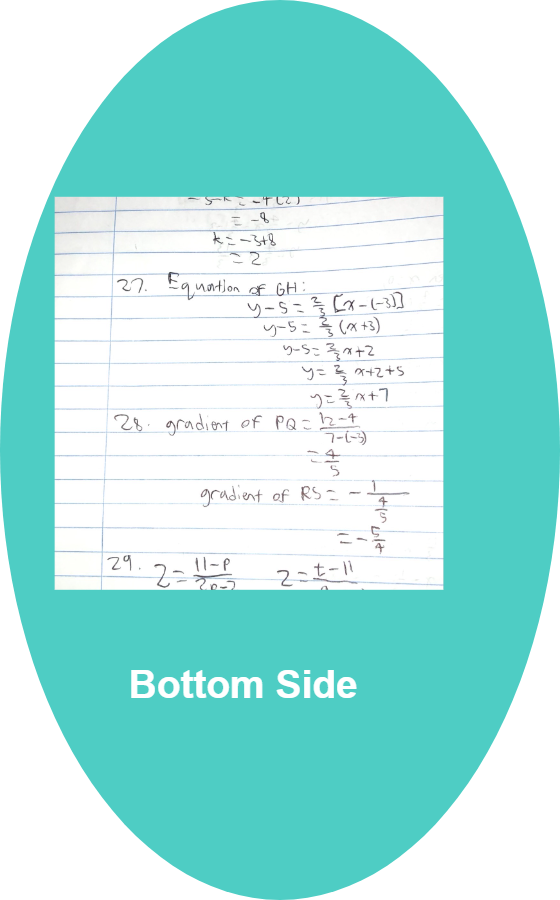 = -8
k = -3+8
= 2
27. Equation of GH:
y-5 = 2/3 [x-(-3)]
y-5 = 2/3 (x+3)
y-5 = 2/3 x+2
y = 2/3 x+2+5
y = 2/3 x+7
28. gradient of PQ = 12-4 / 7-(-3)
= 4/5
gradient of RS = - 1 / 4/5
= - 5/4
29. 2 = 11-p / 2p-7    2 = t-11
Bottom Side